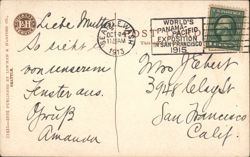 Liebe Mutter
So sieht es
von unserem
Fenster aus.
Gruß
Amanda
WASH.
OCT 24
11 30 AM
1913
POST
WORLD'S
PANAMA PACIFIC
EXPOSITION
IN SAN FRANCISCO
1915
Mrs. J Ebert
3948 Clay St
San Francisco
Calif.